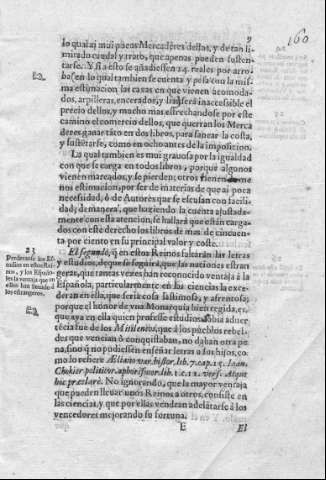 9
160
lo qual ai mui pocos Mercaderes dellos, y de tan li-
mitado caudal y trato, que apenas pueden susten-
tarse. Y si a esto se añadiessen 24. reales por arro-
ba, en lo qual tambien se cuenta y pesa con la mis-
ma estimacion las caxas en que vienen acomoda-
dos, arpilleras, encerados, y lias, será inaccessible el
precio dellos, y mucho mas estrechandose por este
camino el comercio dellos, que querran los Merca
deres ganar tato en dos libros, para sanear la costa,
y sustētarse, como en ocho antes de la imposicion.
La qual tambien es mui gravosa por la igualdad
con que se carga en todos libros, porque algunos
vienen mareados, y se pierden; otros tienen me-
nos estimacion, por ser de materias de que ai poca
necessidad, ò de Autores que se escusan con facili-
dad; de manera, que haziendo la cuenta ajustada-
mente con esta atencion, se hallará que están carga-
dos con este derecho los libros de mas de cincuen-
ta por ciento en su principal valor y coste.
23
Perderanse los Es-
tudios en estos Rei-
nos, y los Españo-
les la ventaja que en
ellos han tenido à
los estrangeros.
El segundo, q̃ en estos Reinos faltarán las letras
y estudios, de que se seguirá, que las naciones estran-
geras, que tantas vezes han reconocido ventaja à la
Española, particularmente en las ciencias la exce-
deran en ella, que sería cosa lastimosa, y afrentosa;
porque el honor de vna Monarquia bien regida, es,
que aya en ella quien professe estudios. Sabia adver-
tēcia fue de los Mitilenos, que à los pueblos rebel-
des que vencian ò conquistaban, no daban otra pe
na, sino q̃ no pudiessen enseñar letras a sus hijos, co-
mo lo refiere Æliano var. histor. lib. 7. cap. 15. Ioan.
Chokier politicor. aphorismor. lib. 1. c. 12. vers. Atque
hic præclarè. No ignorando, que la mayor ventaja
que pueden llevar unos Reinos a otros, consiste en
las ciencias, y que por ellas vendran adelātarse à los
vencedores mejorando su fortuna.
E
El